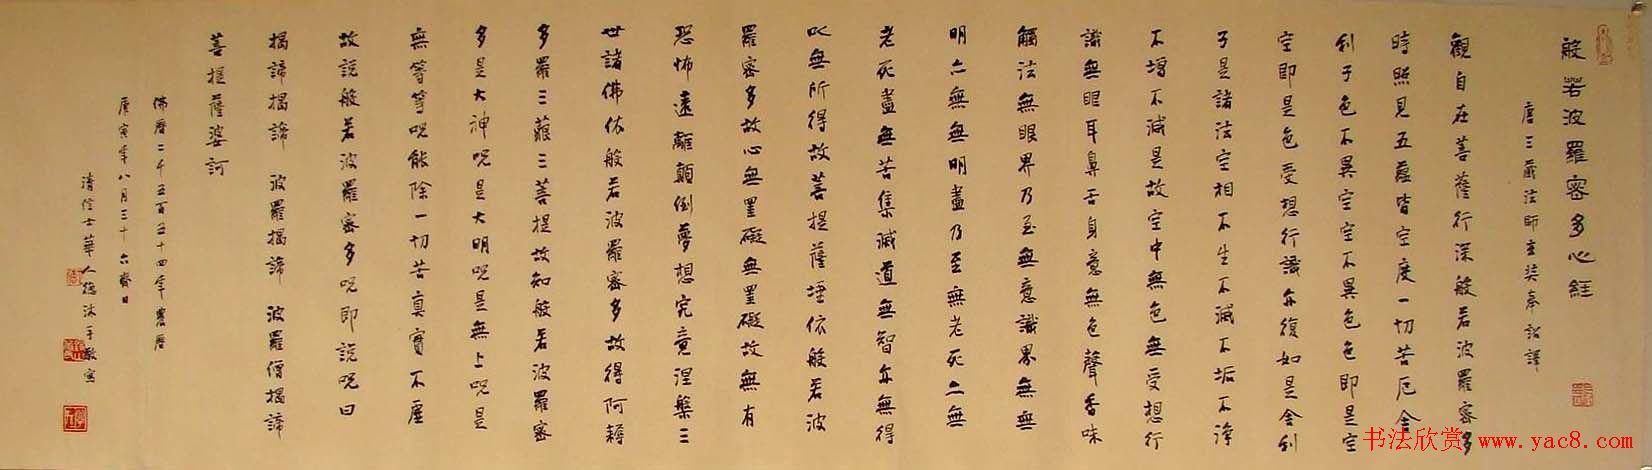 般若波羅密多心經
唐三藏法師玄奘奉詔譯
觀自在菩薩行深般若波羅密多
時照見五蘊皆空度一切苦厄舍
利子色不異空空不異色色即是空
空即是色受想行識亦復如是舍利
子是諸法空相不生不滅不垢不淨
不增不減是故空中無色無受想行
識無眼耳鼻舌身意無色聲香味
觸法無眼界乃至無意識界無無
明亦無無明盡乃至無老死亦無
老死盡無苦集滅道無智亦無得
以無所得故菩提薩埵依般若波
羅密多故心無罣礙無罣礙故無有
恐怖遠離顛倒夢想究竟涅槃三
世諸佛依般若波羅密多故得阿耨
多羅三藐三菩提故知般若波羅密
多是大神呪是大明呪是無上呪是
無等等呪能除一切苦真實不虛
故說般若波羅密多呪即說呪曰
揭諦揭諦 波羅揭諦 波羅僧揭諦
菩提薩婆訶
佛曆二千五百五十四年農曆
庚寅年八月三十六齋日
清信士華人德沐手敬寫
书法欣赏 www.yac8.com